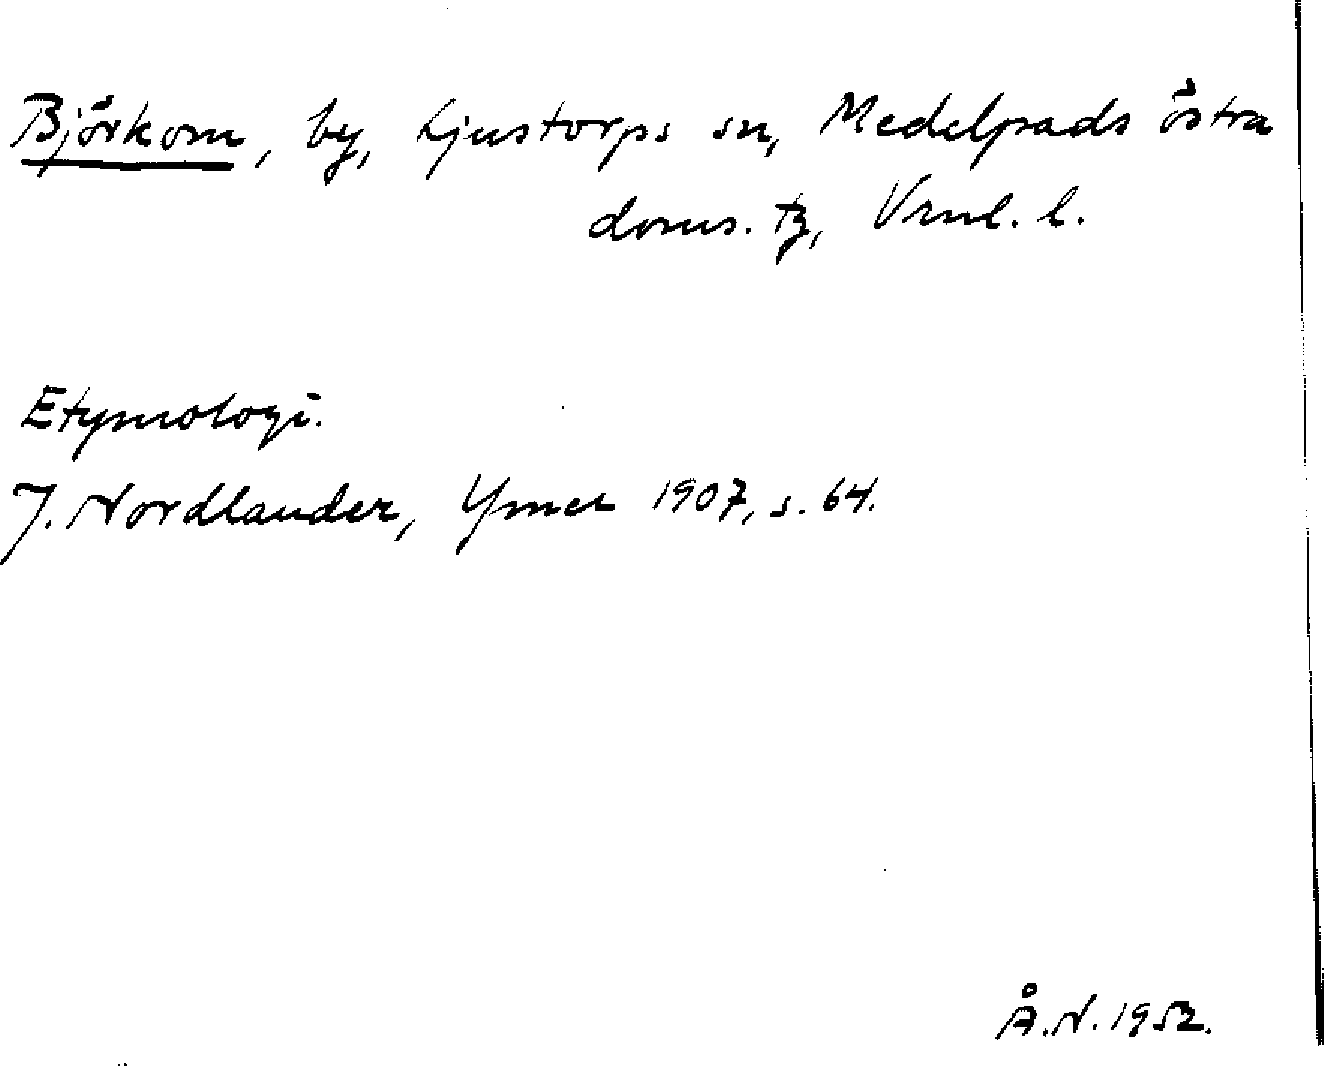 Björkom, by, Ljustorps sn, Medelpads östra
doms. tg, Vrnl. l.
Etymologi.
J. Nordlander, Ymer 1907, s. 64.
Å.N. 1952.